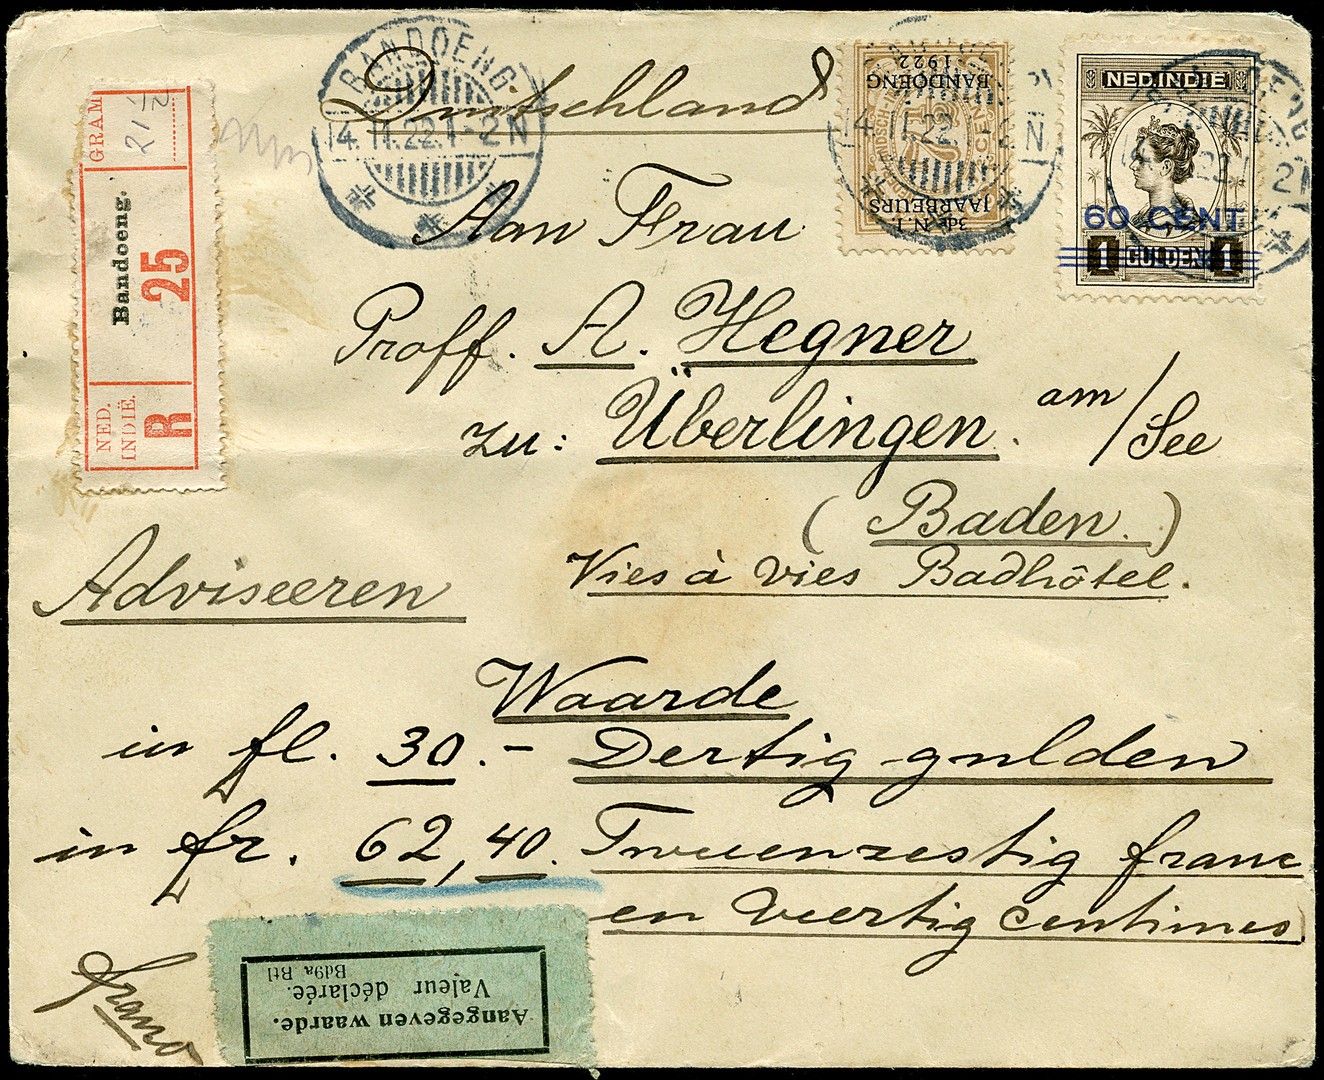 BANDOENG
14.11.22.1-2N
Deutschland
3de N.I.
JAARBEURS
BANDOENG
1922
14.11.22.1-2N
NED.INDIË
60 CENT
1 GULDEN 1
GRAM
21 1/2
Bandoeng.
25
NED.
INDIË.
R
Aan Frau
Proff. A. Hegner
zu: Überlingen. am/See
(Baden.)
Vies à vies Badhôtel.
Adviseeren
Waarde
in fl. 30.- Dertig gulden
in fr. 62,40. Tweeenzestig franc
en Veertig Centimes
franco
Aangegeven waarde.
Valeur déclarée.
Bd9a Btl